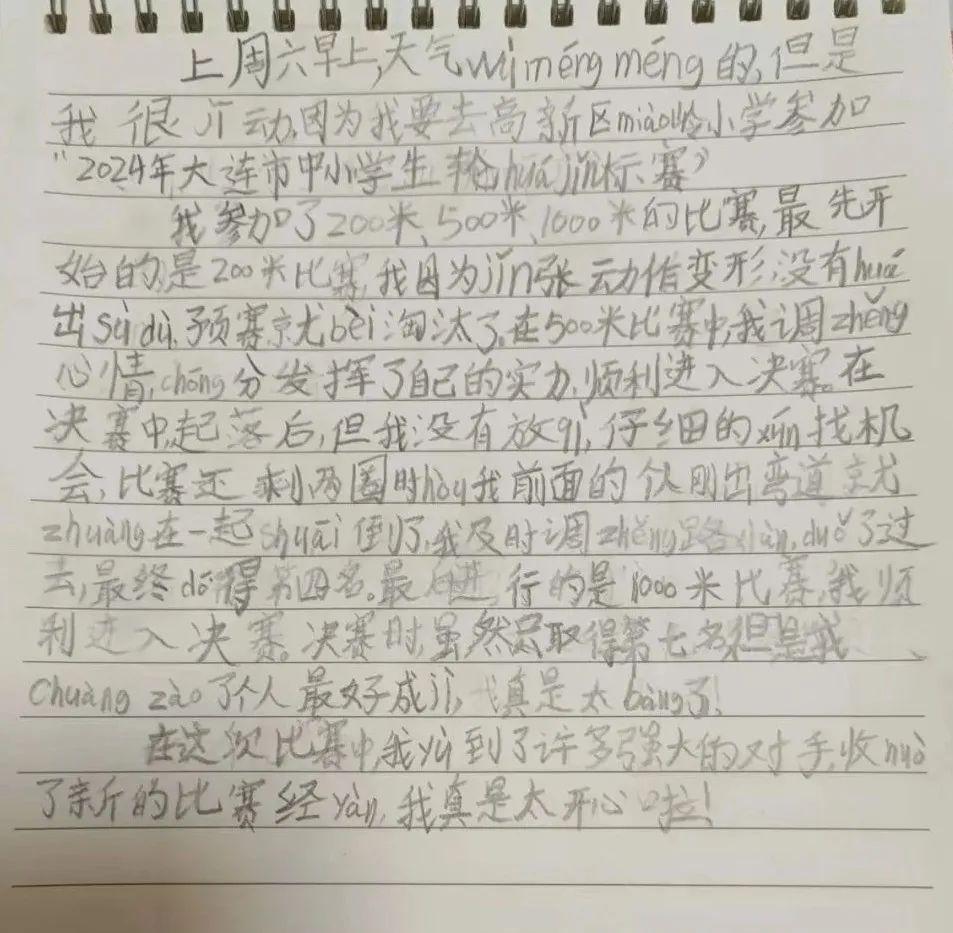 上周六早上,天气wù méng méng的,但是
我很jī动,因为我要去高新区miào岭小学参加
"2024年大连市中小学生轮huá jǐn标赛"
我参加了200米、500米、1000米的比赛,最先开
始的是200米比赛,我因为jǐn张动作变形,没有huá
出sù dù,预赛就bèi淘汰了。在500米比赛中,我调zhěng
心情,chōng分发挥了自己的实力,顺利进入决赛。在
决赛中,起落后,但我没有放qì,仔细的xún找机
会,比赛还剩两圈时hòu我前面的伙刚出弯道就
zhuàng在一起shuāi倒了,我及时调zhěng路xiàn,duǒ了过
去,最终dé得第四名。最后进行的是1000米比赛,我顺
利进入决赛。决赛时,虽然只取得第七名但是我
chuàng zào了个人最好成jì,我真是太bàng了!
在这次比赛中,我yù到了许多强大的对手,收huò
了新的比赛经yàn,我真是太开心啦!